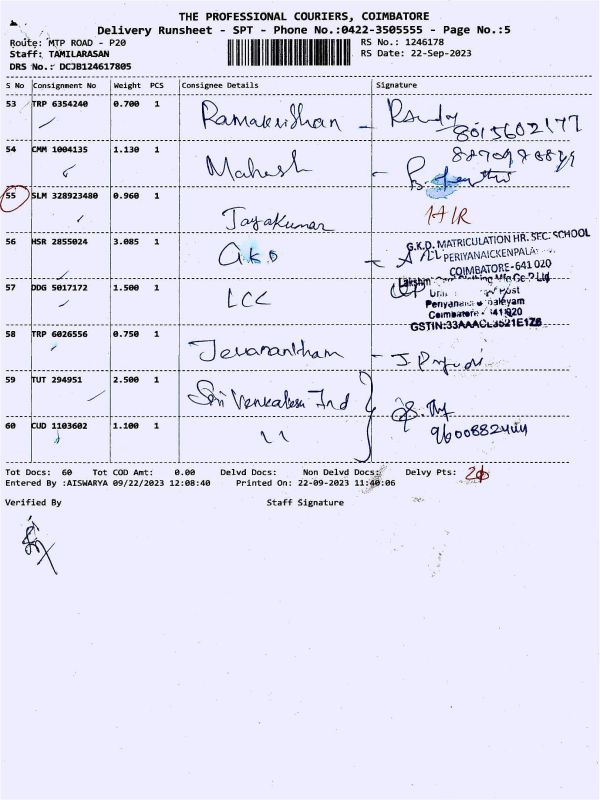 THE PROFESSIONAL COURIERS, COIMBATORE
Delivery Runsheet - SPT - Phone No.:0422-3505555 - Page No.:5
Route: MTP ROAD - P20 RS No.: 1246178
Staff: TAMILARASAN RS Date: 22-Sep-2023
DRS No.: DCJB124617805
S No Consignment No Weight PCS Consignee Details Signature
53 TRP 6354240 0.700 1 Ramakrishnan - 8015602177
54 CMM 1004135 1.130 1 Mahesh -
55 SLM 328923480 0.960 1 Jayakumar
56 HSR 2855024 3.085 1 G.K.D -
G.K.D. MATRICULATION HR. SEC. SCHOOL
PERIYANAICKENPALA
COIMBATORE-641 020
57 DDG 5017172 1.500 1 LCC
Coimbatore - 641 020
GSTIN:33AAACL3521E1Z6
58 TRP 6026556 0.750 1 -
59 TUT 294951 2.500 1 Sri Venkatesa Ind
60 CUD 1103602 1.100 1 11
Tot Docs: 60 Tot COD Amt: 0.00 Delvd Docs: Non Delvd Docs: Delvy Pts:
Entered By :AISWARYA 09/22/2023 12:08:40 Printed On: 22-09-2023 11:40:06
Verified By Staff Signature